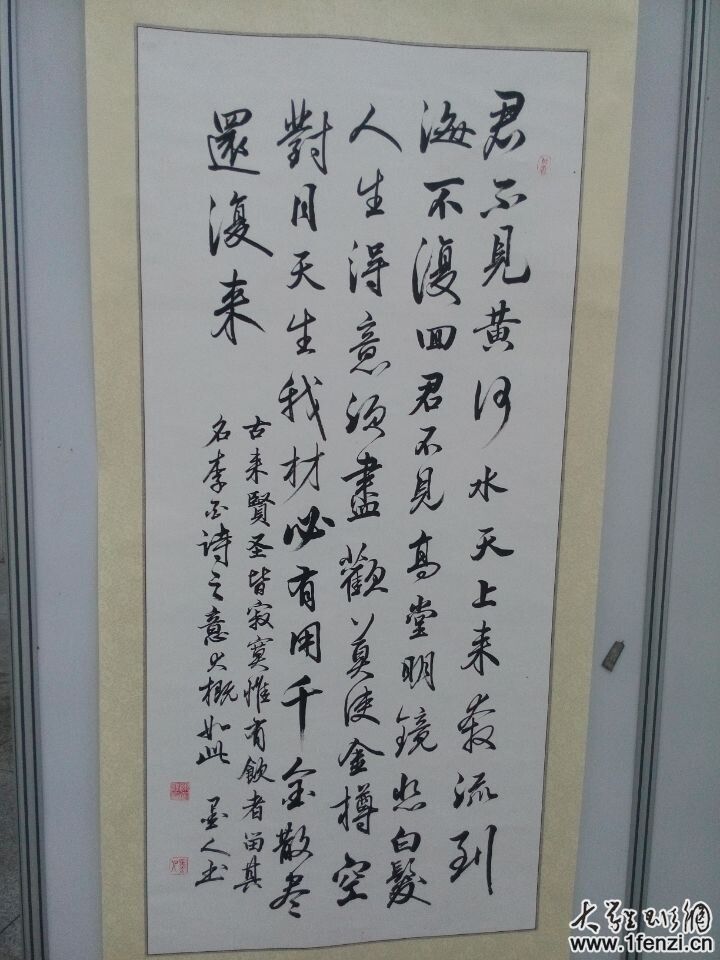 君不見黄河水天上来奔流到
海不復回君不見高堂明鏡悲白髮
人生得意須盡歡莫使金樽空
對月天生我材必有用千金散尽
還復来
古来賢圣皆寂寞惟有飲者留其
名李白诗之意大概如此 墨人书
www.1fenzi.cn